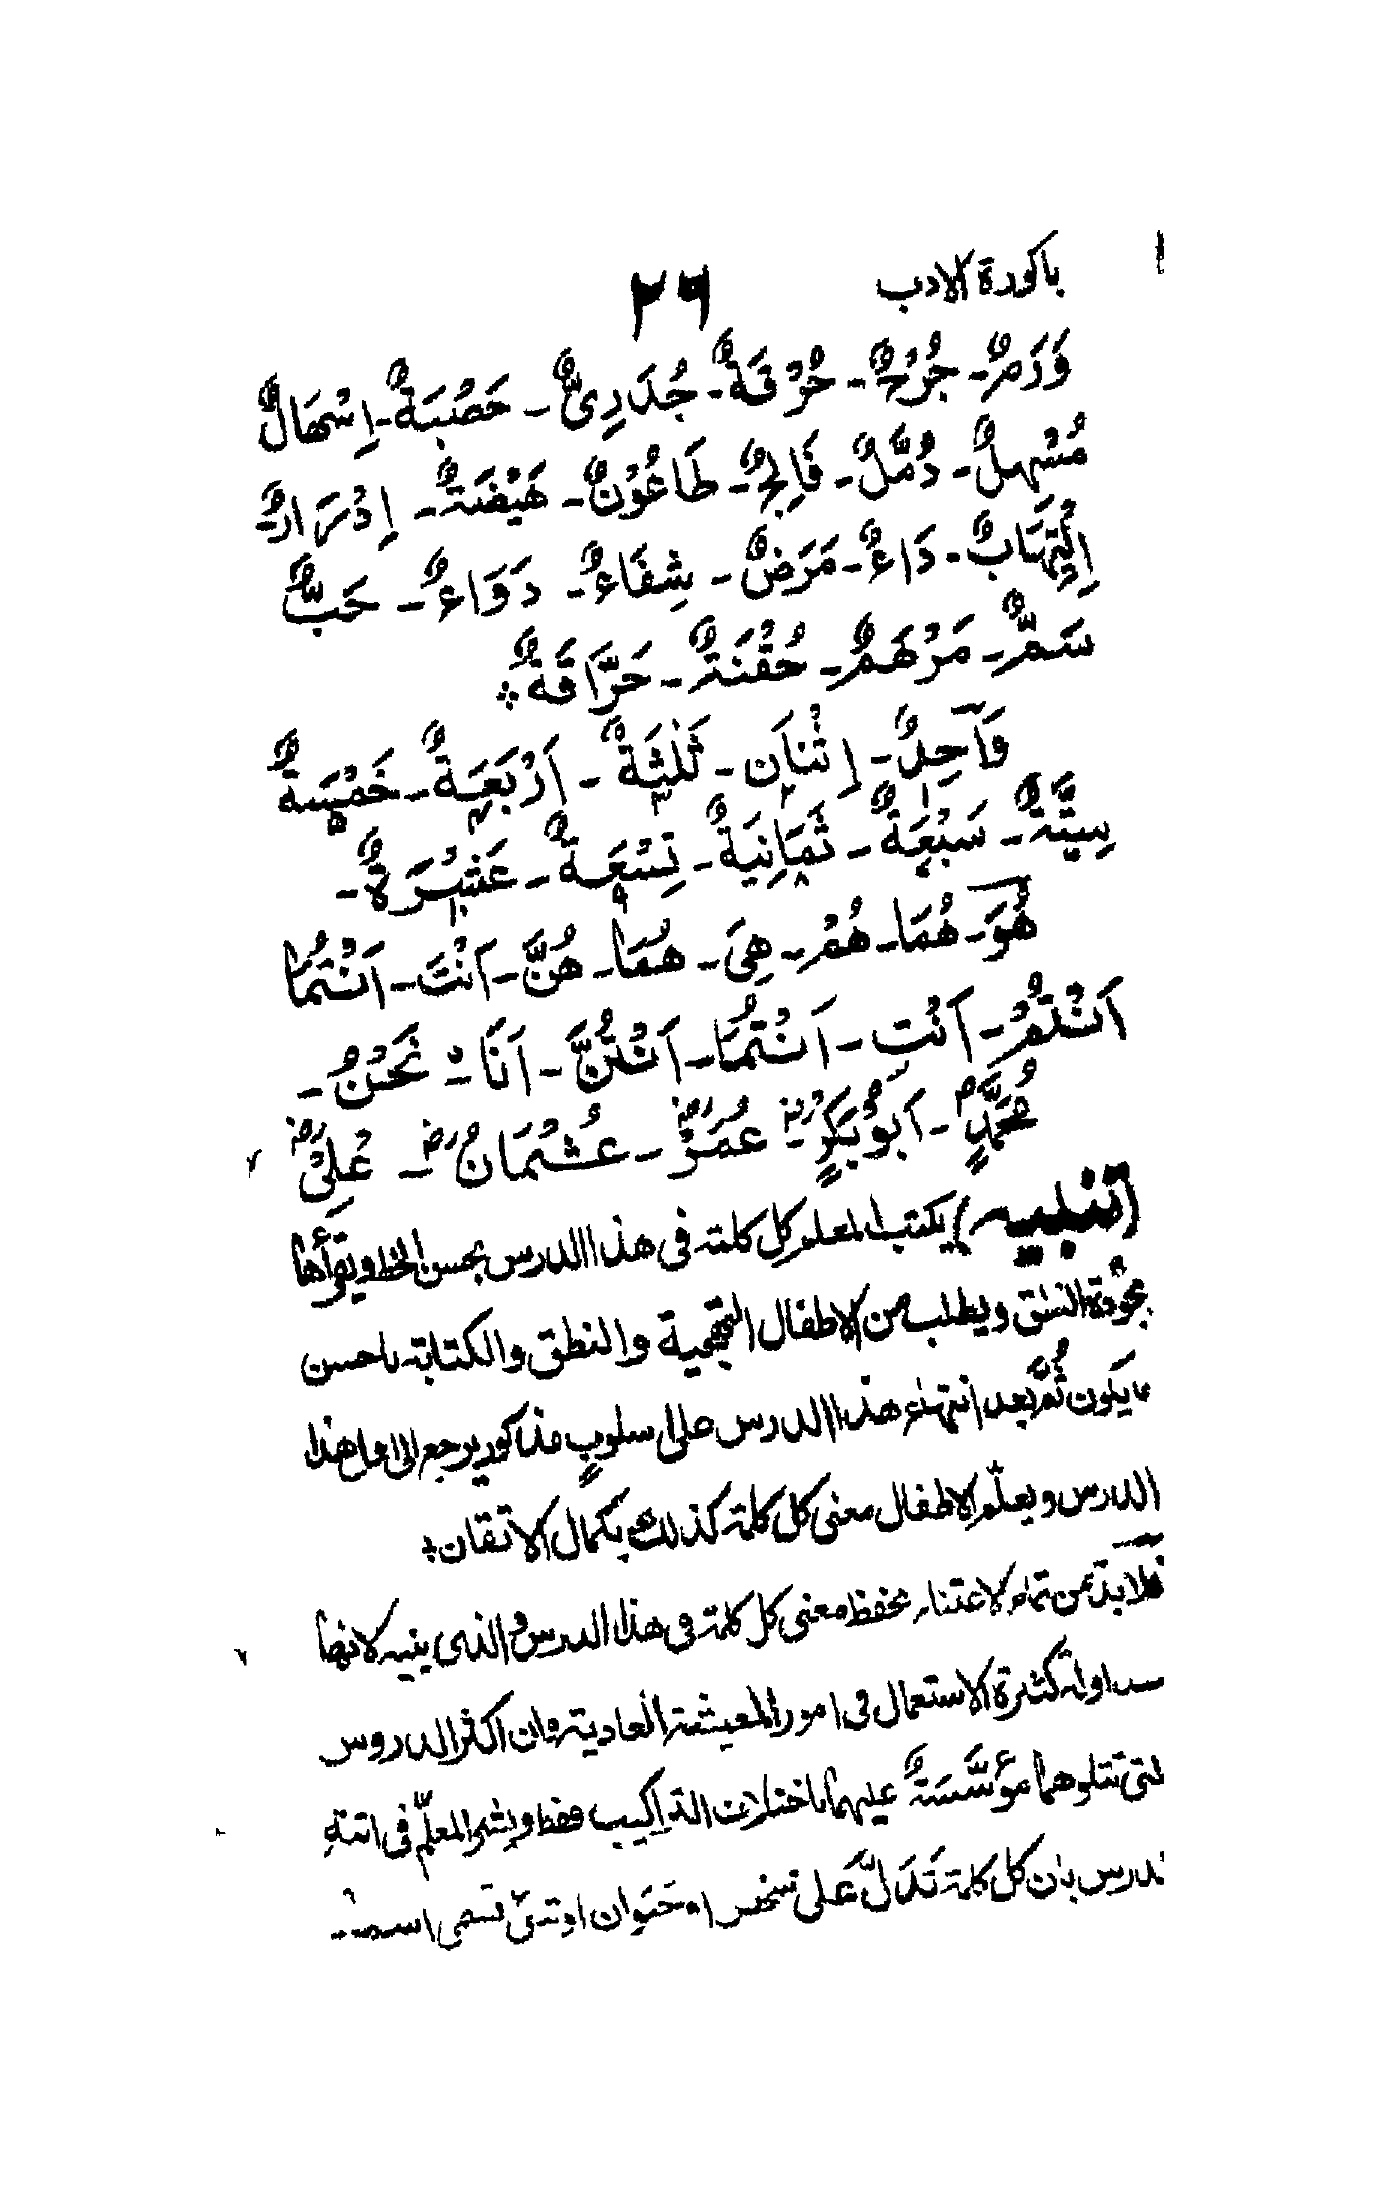 باكورة الادب ٢٦
وَرَمٌ - جُرْحٌ - حُرْقَةٌ - جُدَرِىٌّ - حَصْبَةٌ - اِسْهَالٌ
مُسْهِلٌ - دُمَّلٌ - فَالِجٌ - طَاعُوْنٌ - هَيْضَةٌ - اِدْرَارٌ -
اِلْتِهَابٌ - دَاءٌ - مَرَضٌ - شِفَاءٌ - دَوَاءٌ - حَبٌّ
سَمٌّ - مَرْهَمٌ - حُقْنَةٌ - حَرَّاقَةٌ ؞
وَاحِدٌ - اِثْنَانِ - ثَلٰثَةٌ - اَرْبَعَةٌ - خَمْسَةٌ
سِتَّةٌ - سَبْعَةٌ - ثَمَانِيَةٌ - تِسْعَةٌ - عَشْرَةٌ -
هُوَ - هُمَا - هُمْ - هِىَ - هُمَا - هُنَّ - اَنْتَ - اَنْتُمَا
اَنْتُمْ - اَنْتِ - اَنْتُمَا - اَنْتُنَّ - اَنَا - نَحْنُ -
مُحَمَّدٌ - اَبُوْبَكْرٍ - عُمَرُ - عُثْمَانُ - عَلِىٌّ
(تنبيه) يكتب المعلم كل كلمة فى هذا الدرس بحسن الخط ويقرأها
بجودة النطق ويطلب من الاطفال التهجية والنطق والكتابة باحسن
ما يكون ثُمَّ بعد انتهاء هذا الدرس على اسلوبٍ مذكور يرجع الى اول هذا
الدرس ويعلّم الاطفال معنى كل كلمة كذلك بكمال الاتقان ؞
فلابدّ من تمام الاعتناء بحفظ معنى كل كلمة فى هذا الدرس والذى يليه لانها
كثيرة الاستعمال فى امور المعيشة العادية وان اكثر الدروس
التى تتلوهما مؤسَّسَةٌ عليهما باختلاف التراكيب فقط المعلّم فى
الدرس بان كل كلمة تَدَلُّ عَلى شخص او حَيَوان او شىء تسمى اسما -